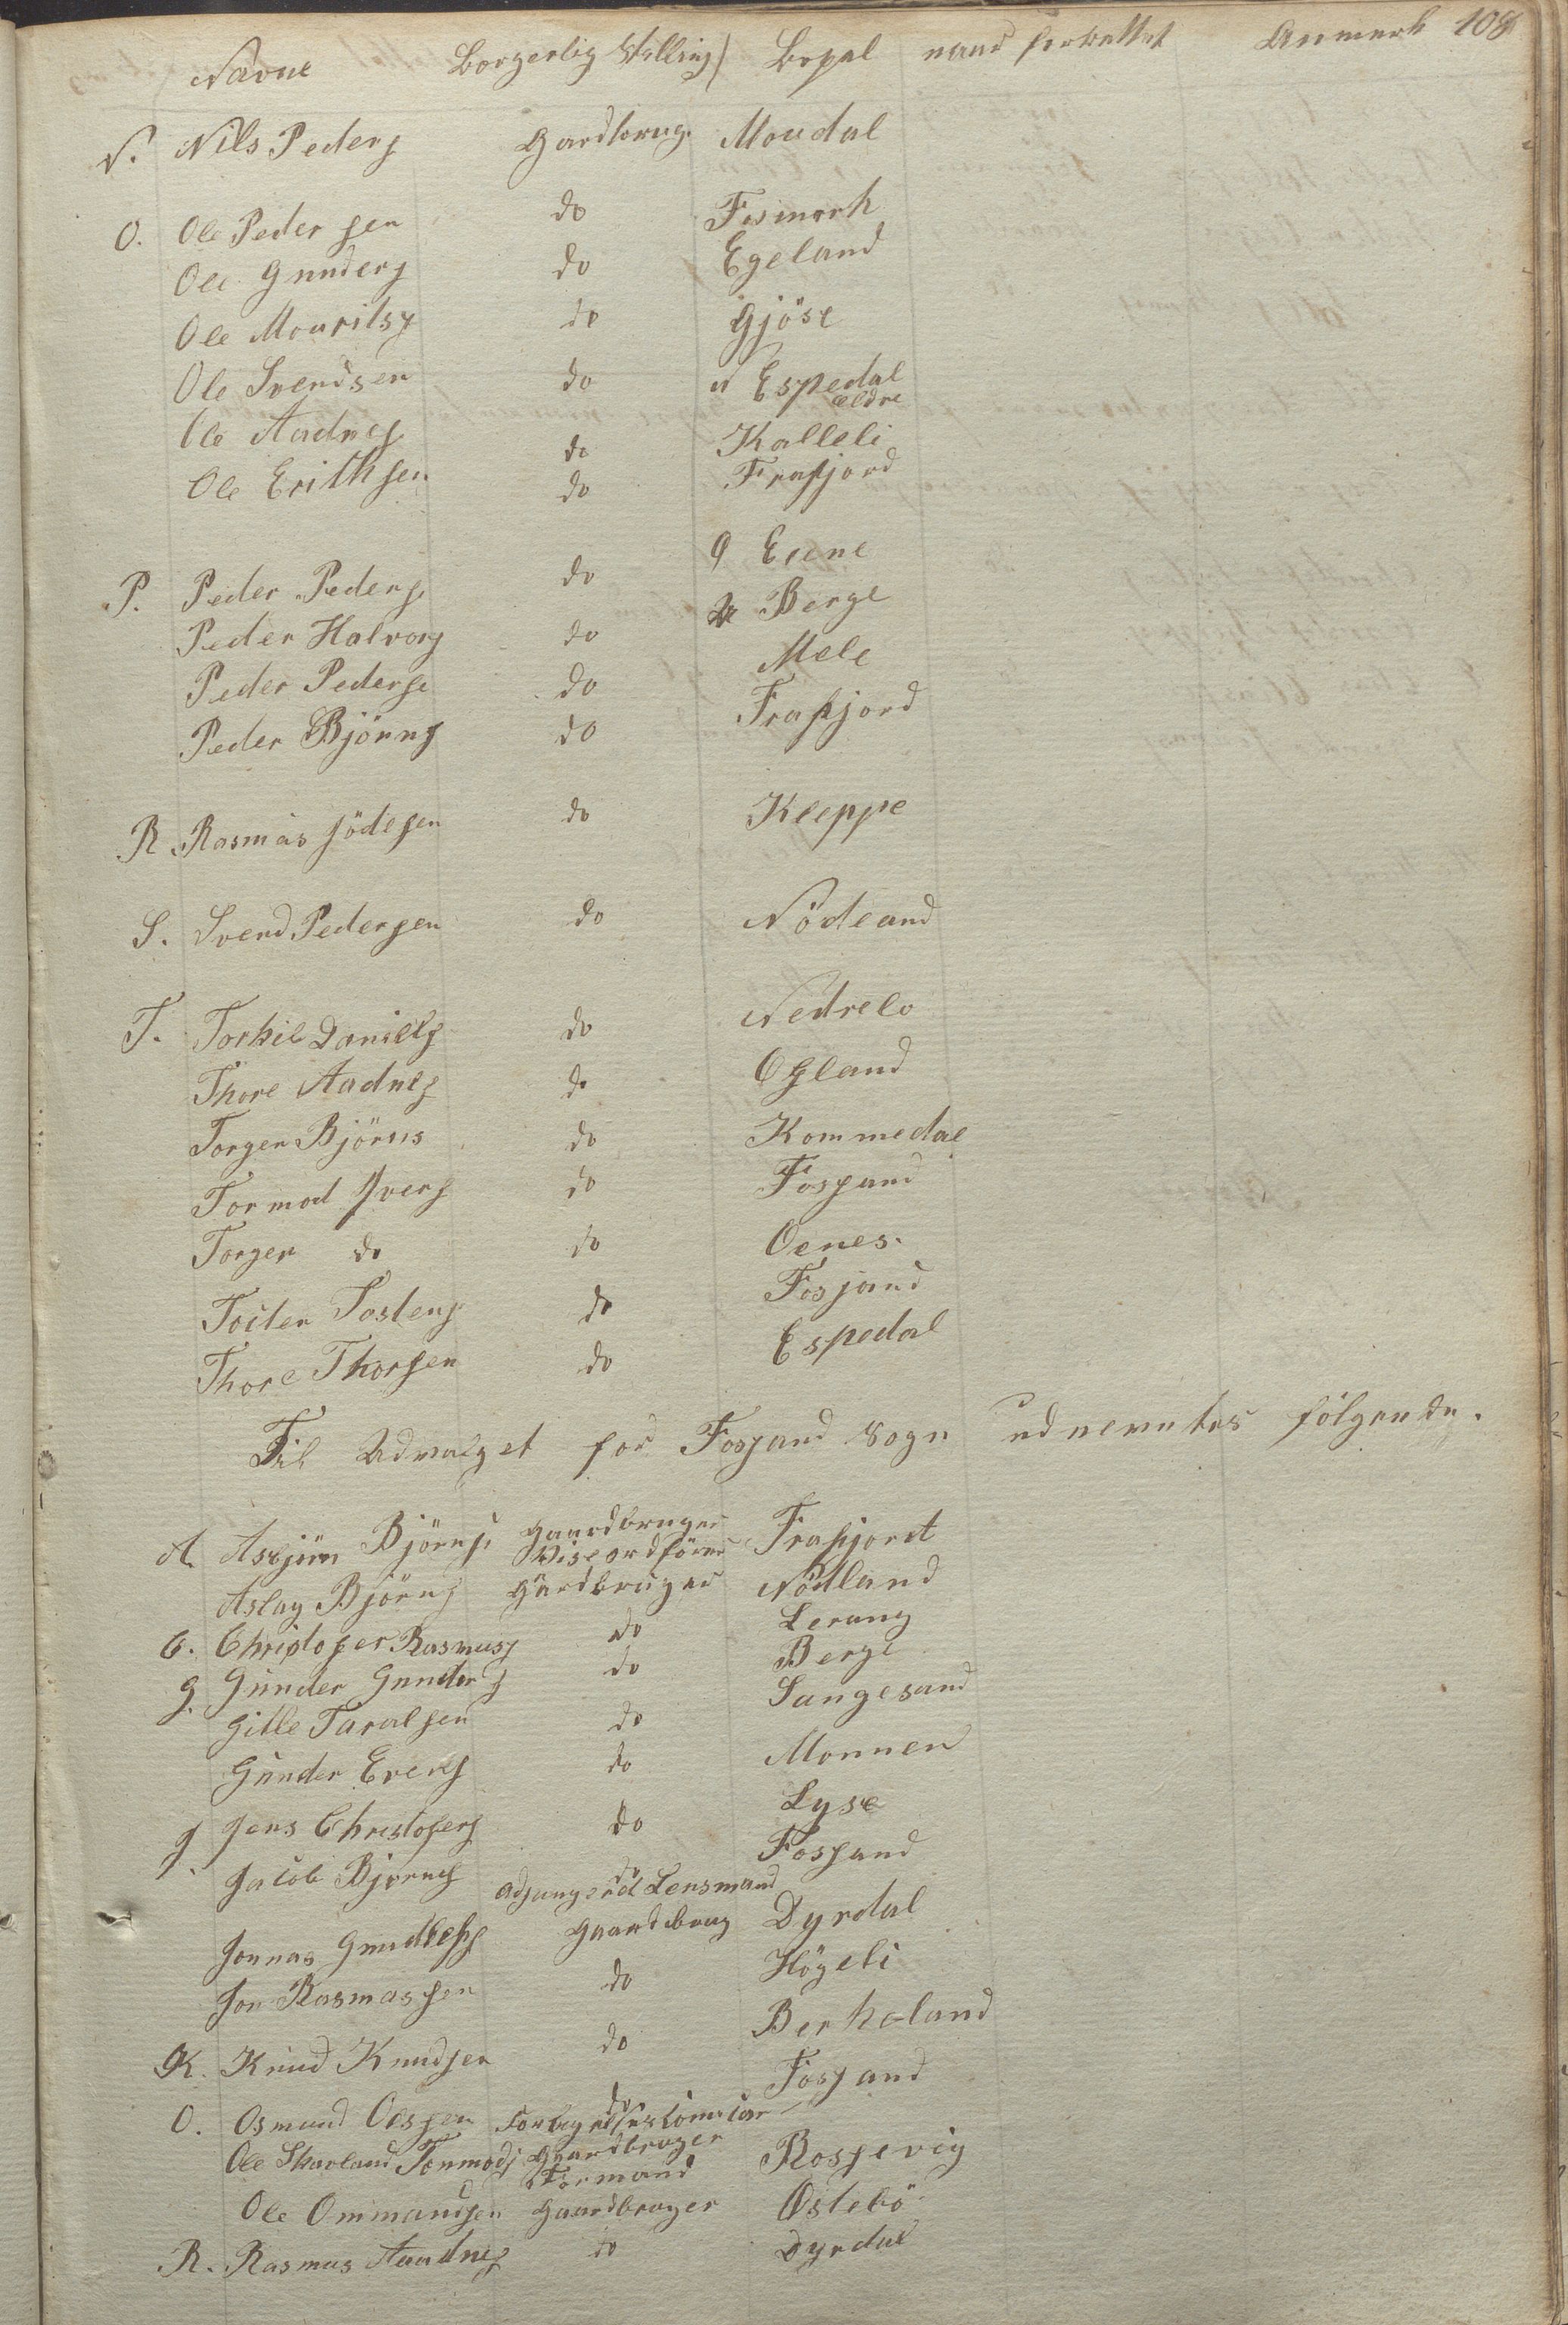 Navne Borgerlig Stilling) Bopæl naar forkattet Anmerk 108
N. Nils Peders Gardbrug. Moudal
O. Ole Pedersen do Fosmark
Ole Gunders do Egeland
Ole Mouritss do Gjöse
Ole Svendsen do N Espedal ældre
Ole Aadnes do Kalleli
Ole Erikhsen do Frafjord
P. Peder Peders do Eiene
Peder Halvors do Berge
Peder Peders do Mele
Peder Björns do Frafjord
R. Rasmus Jödesen do Kleppe
S. Svend Pedersen do Nödland
T. Torkil Daniels do Nedrebo
Thore Aadnes do Ogland
Torger Björns do Kommedal
Tormod Ivers do Fossand
Torger do do Oenes.
Toster Tostens do Fossand
Thore Thorsen do Espedal
Til Udvalget for Fossand Sogn udnevntes fölgende.
A. Asbjörn Björns Gaardbruger Viseordförer Frafjord
Aslag Björns Gardbruger Nödland
C. Christofer Rasmuss do Lerang
G. Gunder Gunders do Berge
Gitle Taralsen do Sangesand
Gunder Evers do Monnen
J. Jens Christofers do Lyse
Jacob Bjorns do Fossand
adjungerd Lensmand
Jonnas Gundbes Gaardbrug Dyrdal
Jon Rasmassen do Högeli
K. Knud Knudsen do Berkeland
O. Osmund Olssen do Fossand
Forlig
Ole Skavland Tormods Gaardbruger Formand Rossevig
Ole Ommandsen Gaardbruger Östebö
R. Rasmus Aaadnes do Dyrdal